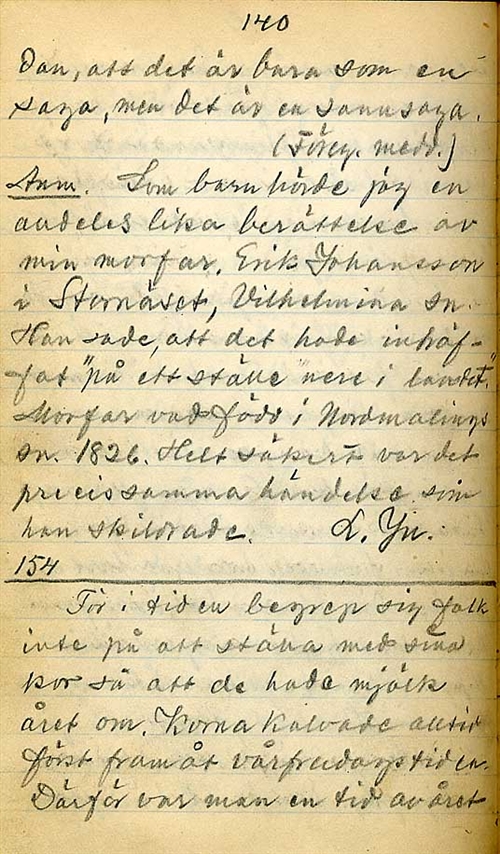 140
dan, att det är bara som en
saga, men det är en sann saga.
(Föreg. medd.)
Anm. Som barn hörde jag en
andeles lika berättelse av
min morfar, Erik Johansson
i Stornäset, Vilhelmina sn.
Han sade, att det hade inträf-
fat "på ett ställe nere i landet."
Morfar var född i Nordmalings
sn. 1826. Helt säkert var det
precis samma händelse som
han skildrade. L. Yn.
154
För i tiden begrep sig folk
inte på att ställa med sina
kor så att de hade mjölk
året om. Korna kalvade alltid
först framåt vårfrudagstiden.
Därför var man en tid av året